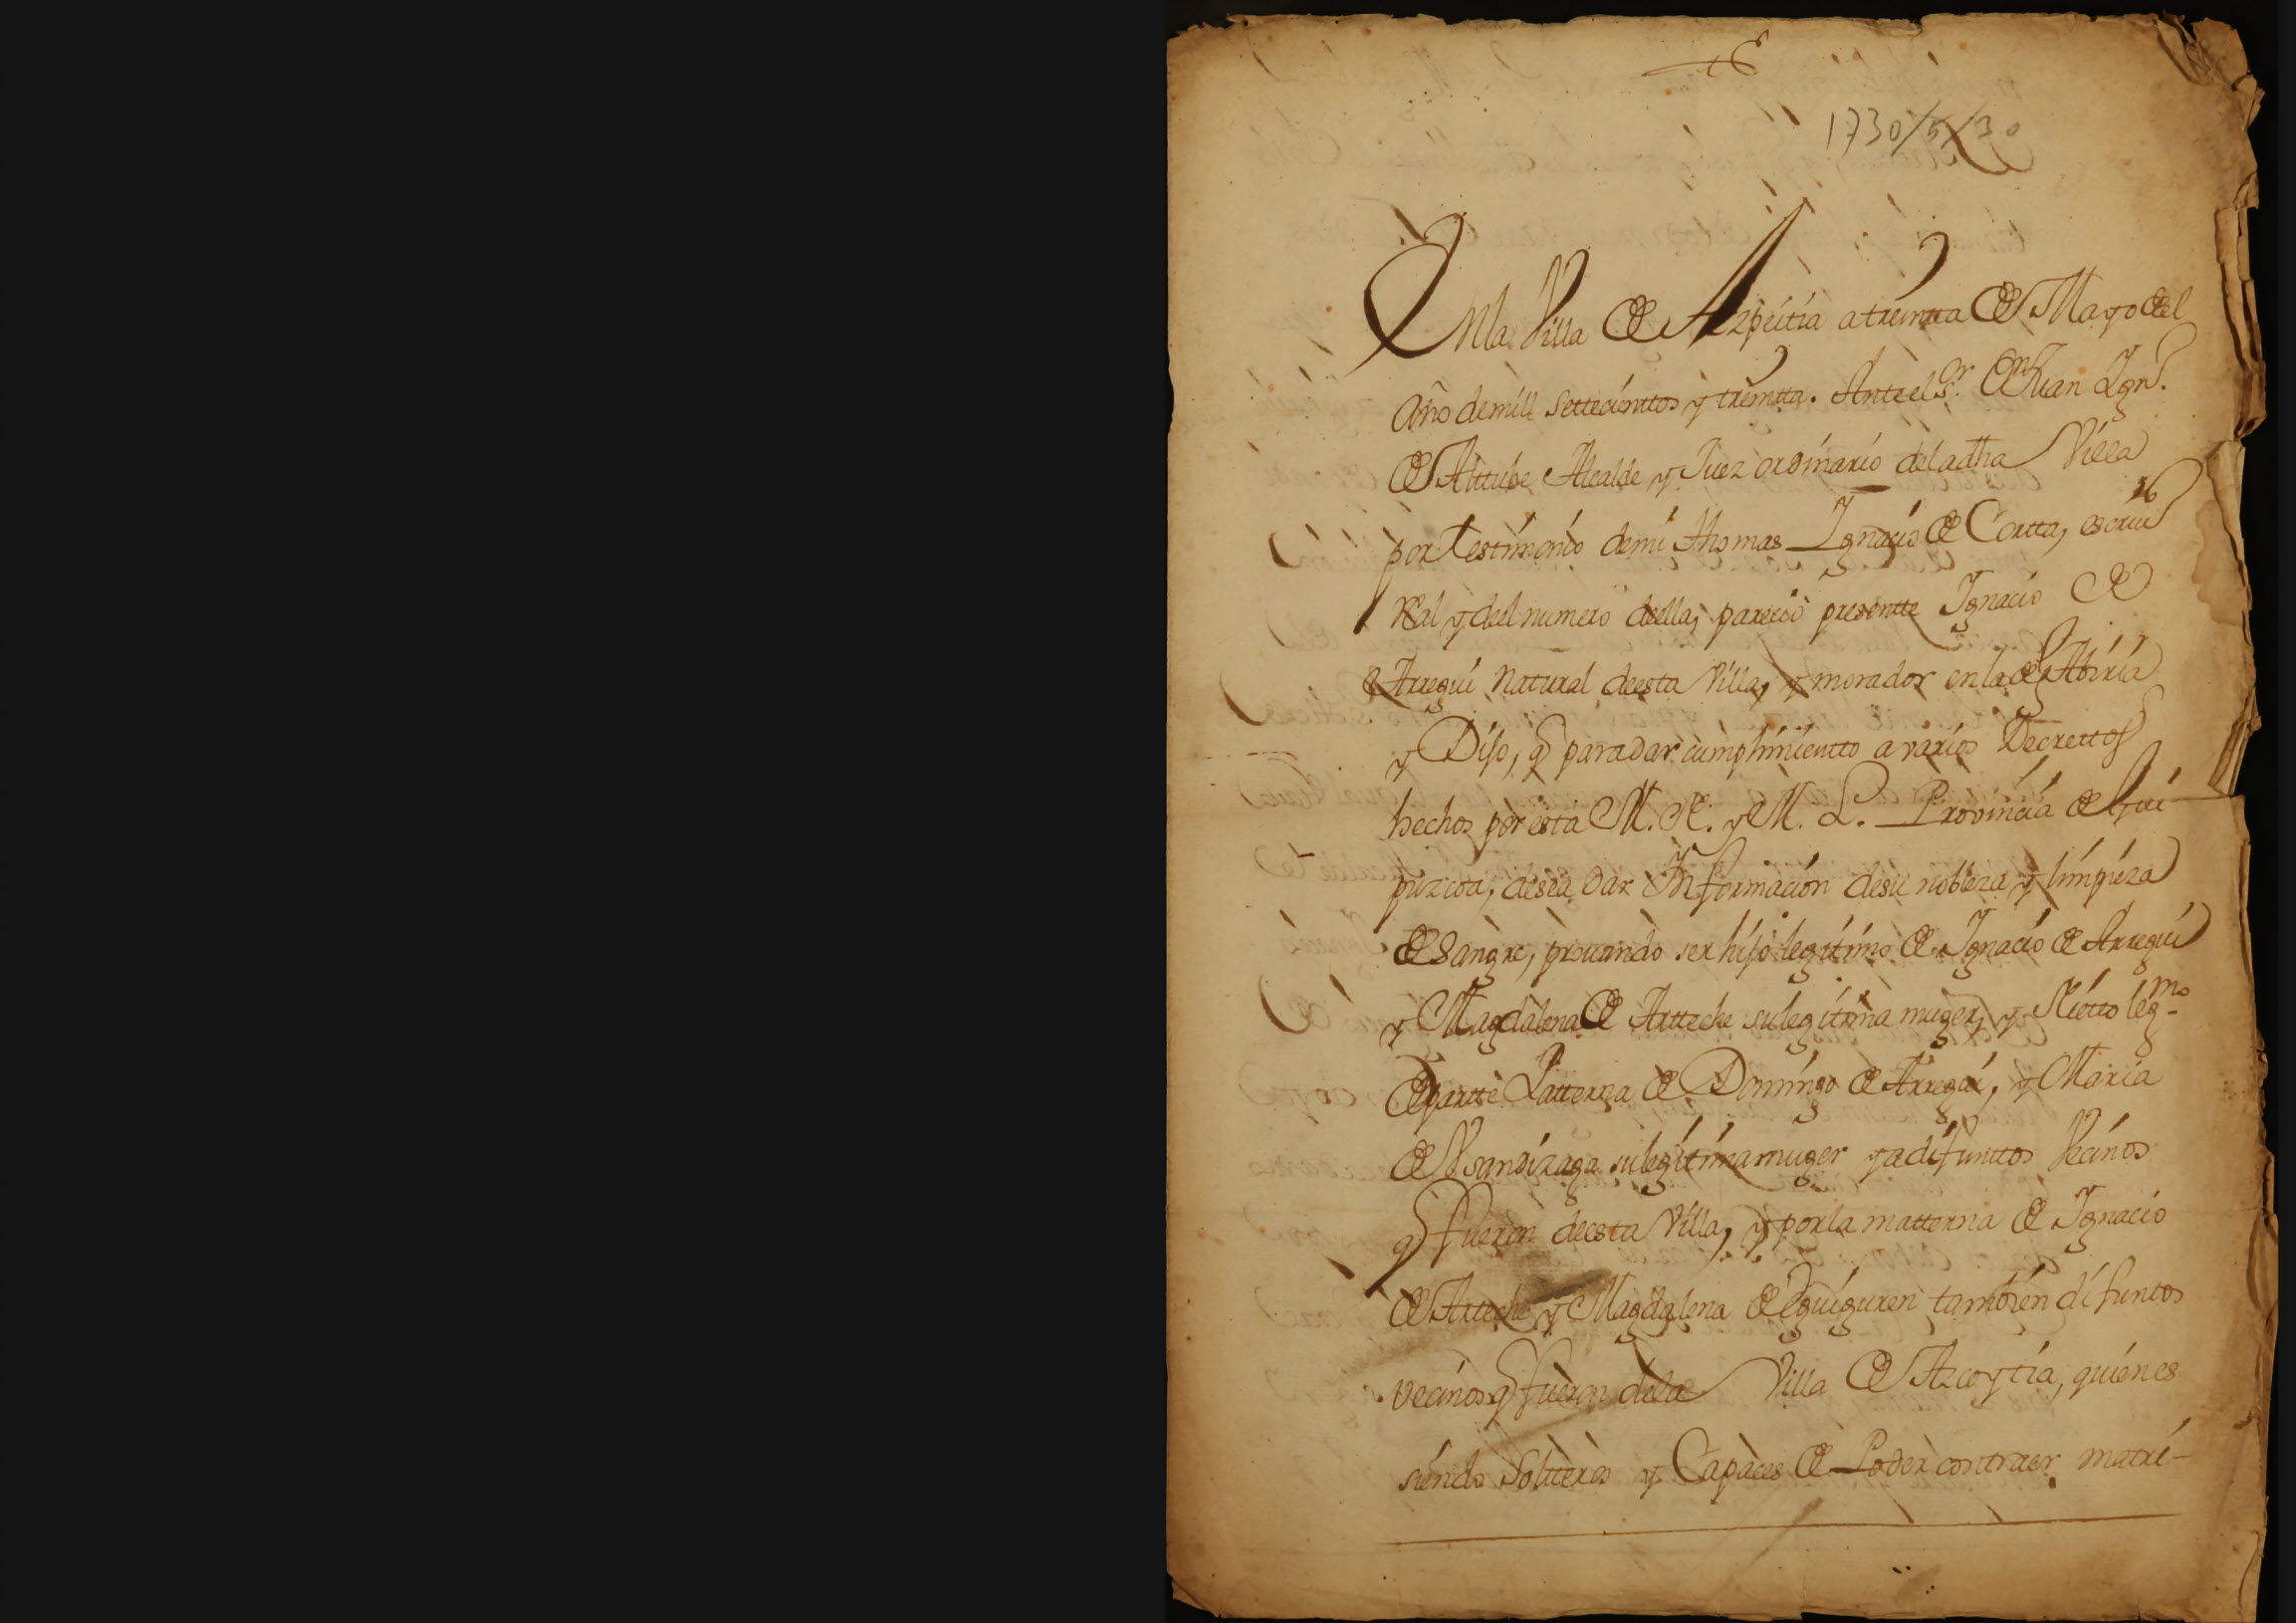 1730/5/30
En la Villa de Azpeitia a treintta de Mayo del
Año de mill settecienttos y treintta. Ante el S.r Dn Juan Ign.o
de Alttube Alcalde y Juez ordinario de la dha Villa
por testimonio de mi Thomas Ignacio de Cortta, escriu
Real y del numero de ella, pareció presentte Ignacio de
Arregui Natural de esta Villa, y morador en la de
y Dijo, q para dar cumplimientto a varios Decrettos
hechos por esta M. N. y M. L. Provincia de Gui-
puzcoa, desea dar Informacion de su nobleza y limpieza
de Sangre, prouando ser hijo legitimo de Ignacio de Arregui
y Magdalena de Artteche su legitima muger, y Nietto leg.mo
de partte Patterna de Domingo de Arregui, y Maria
de Vsandizaga su legitima muger ya difunttos Vecinos
q fueron de esta Villa, y por la matterna de Ignacio
de Arteche y Magdalena de Eguiguren tambien difuntos
vecinos q fueron de la Villa de Azcoytia, quienes
siendo Soltteros y Capaces de Poder contraer matri-